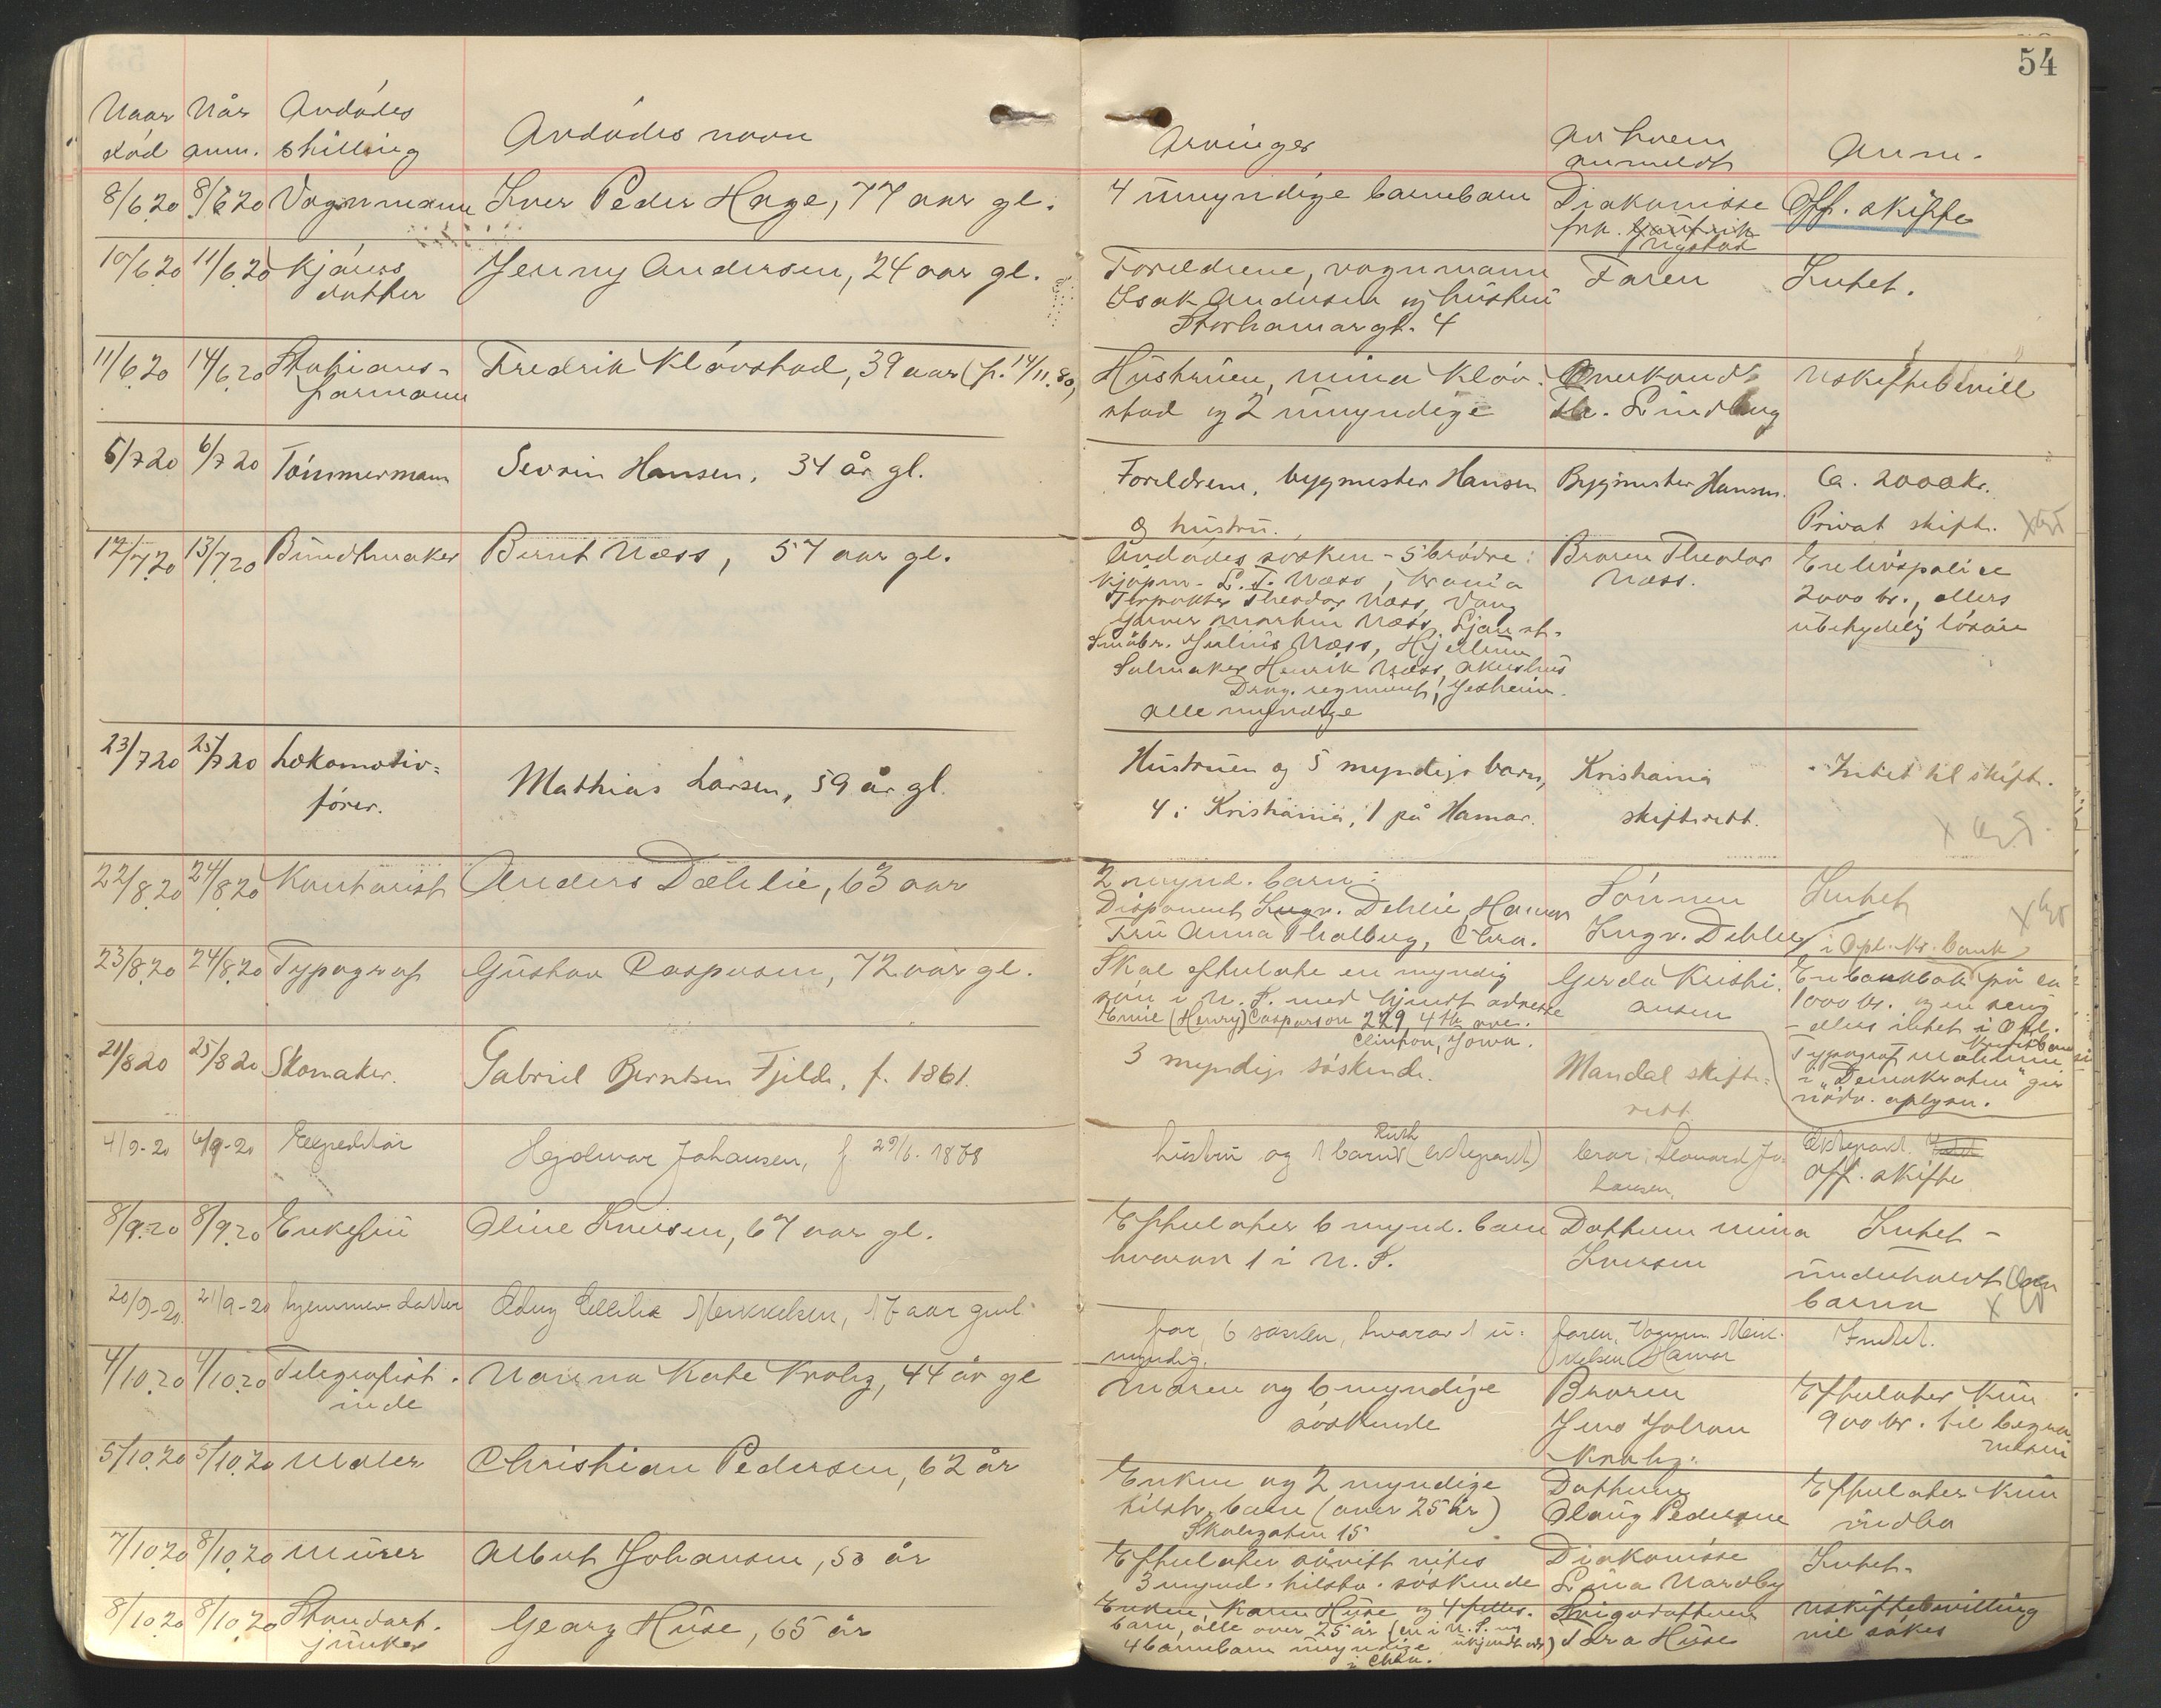 54
Naar død
Når anm.
Avdødes stilling
Avdødes navn
Arvinger
Av hvem anmeldt
Anm.
8/6 20 8/6 20 Vognmann Iver Peder Hage, 77 aar gl.
4 umyndige barnebarn
Diakonisse
frk. Nystad
Off. skifte
10/6 20 11/6 20 Kjøers datter Jenny Andersen, 24 aar gl.
Foreldrene, vognmann
Isak Andersen og hustru
Storhamargt. 4
Faren
Intet.
11/6 20 14/6 20 Stations-formann Fredrik Kløvstad, 39 aar (f. 14/11.80)
Hustruen, Mina Kløv-
stad og 2 umyndige
Overkond.
Lindberg
Uskiftebevill
5/7 20 6/7 20 Tømmermann Sevrin Hansen, 34 år gl.
Foreldrene, bygmester Hansen
og hustru.
Bygmester Hansen.
Ca. 2000 kr.
Privat skifte.
12/7 20 13/7 20 Bundtmaker Bernt Næss, 57 aar gl.
Avdødes søsken - 5 brødre:
Kjøpm. L. F. Næss, Krania
Forpakter Theodor Næss, Vang
Garver Martin Næss, Ljan st.
Småbr. Julius Næss, Hjellum
Salmaker Henrik Næss, Akershus
Drag. regiment, Jesheim.
alle myndige
Broren Theodor
Næss.
En livspolise
2000 kr., ellers
ubetydelig løsøre
23/7 20 25/7 20 Lokomotiv-fører. Mathias Larsen, 59 år gl.
Hustruen og 5 myndige barn,
4 i Kristiania, 1 på Hamar.
Kristiania
skifterett.
Intet til skifte.
22/8 20 24/8 20 Kontorist Anders Dæhlie, 63 aar
2 mynd. barn:
Disponent Ingv. Dehlie, Hamar
Fru Anna Thalberg, Chra.
Sønnen
Ingv. Dehlie
Intet
23/8 20 24/8 20 Typograf Gustav Caspersen, 72 aar gl.
Skal efterlate en myndig
søn i U. S. med kjendt adresse
Emil (Henry) Casparson 229, 4th ave.
Clinton, Iowa.
Gerda Kristi-
ansen
i Opl. Kr. bank
En bankbok på ca
1000 kr. og en seng
- ellers intet i Opl.
Kreditbank
Typograf
i "Demokraten" gir
nødv. oplysn.
21/8 20 25/8 20 Skomaker. Gabriel Berntsen Fjeld, f. 1861.
3 myndige søskende.
Mandal skifte-
rett
4/9-20 6/9-20 Expeditør Hjalmar Johansen, f 29/6. 1878
hustru og 1 barn Ruth (ektepakt)
bror, Leonard Jo-
hansen.
Ektepakt.
Off. skifte
8/9 20 8/9 20 Enkefru Oline Iversen, 67 aar gl.
Efterlater 6 mynd. barn
hvorav 1 i U. S.
Datteren Mina
Iversen
Intet -
underholdt av
barna
20/9-20 21/9-20 hjemmev. datter Meikkelsen, 17 aar gml.
far, 6 søsken, hvorav 1 u-
myndig.
faren, Vognm. Meik-
kelsen Hamar
Intet.
4/10 20 4/10 20 Telegrafist-inde Nanna Kate Krohg, 44 år gl
Moren og 6 myndige
søskende
Broren
Jens Johan
Krohg.
Efterlater kun
900 kr. til begra-
velsen
5/10 20 5/10 20 Maler Christian Pedersen, 62 år
Enken og 2 myndige
tilst. barn (over 25 år)
Skolegaten 15
Datteren
Olaug Pedersen
Efterlater kun
indbo
7/10 20 8/10 20 Murer Albert Johansen, 50 år
Efterlater såvitt vites
3 mynd. tilstv. søskende
Diakonisse
Lina Nordby
Intet.
8/10 20 8/10 20 Standart-junker Georg Huse, 65 år
Enken, Karen Huse og 4 felles-
barn, alle over 25 år (en i U. S. ukjendt adr)
4 barnebarn umyndige i Chra.
Svigerdatteren
Dora Huse
Uskiftebevilling
vil søkes